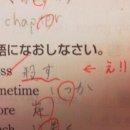 chapter
語になおしなさい。
ss 殺す ← え!!
metime いつか
ore 岸
uch